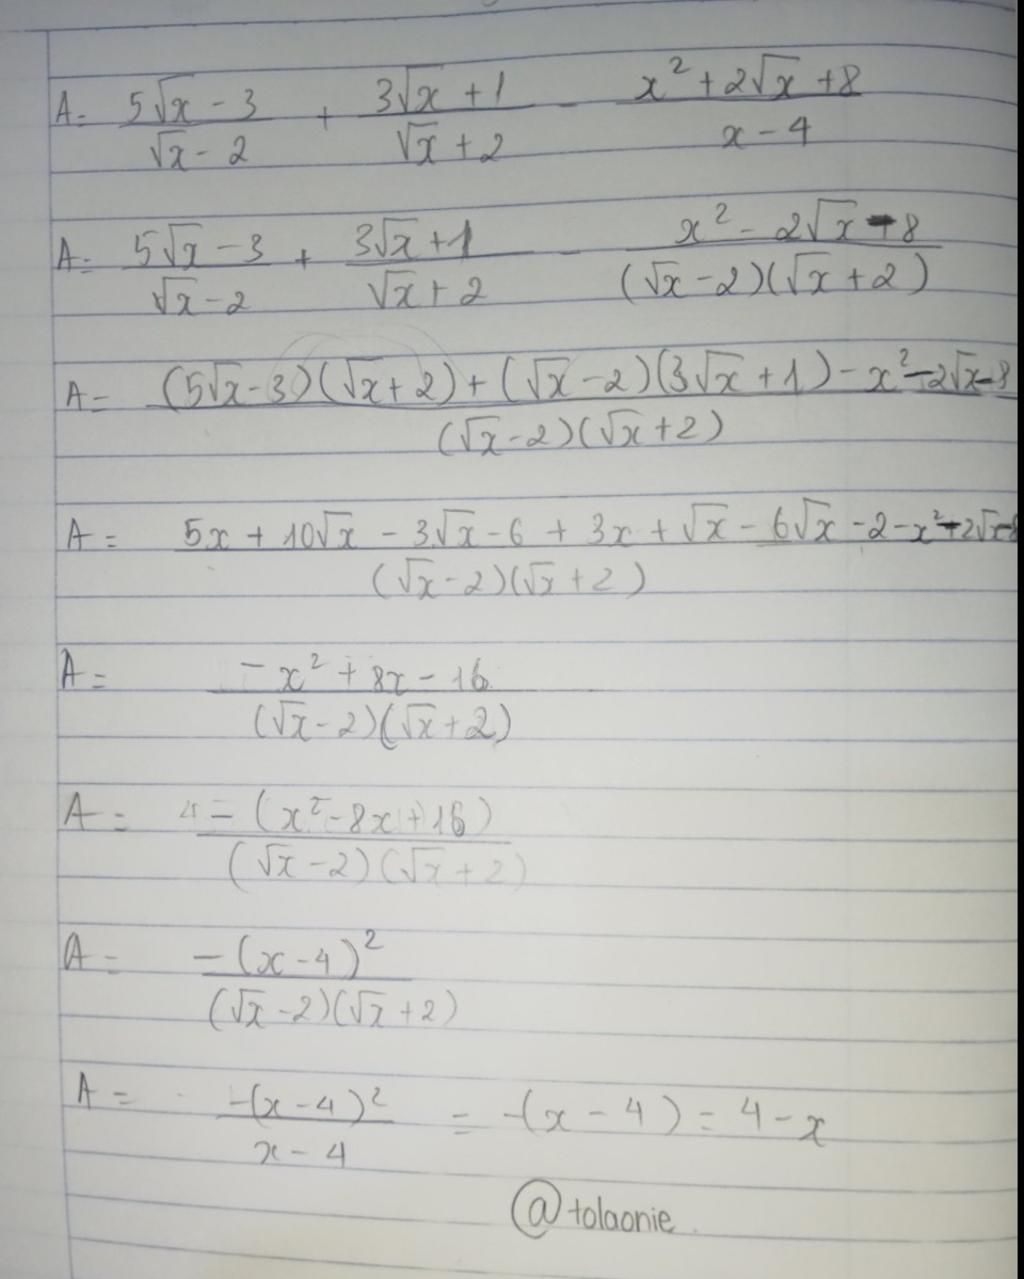 A = (5√x - 3)/(√x - 2) + (3√x + 1)/(√x + 2) - (x² + 2√x + 8)/(x - 4)
A = (5√x - 3)/(√x - 2) + (3√x + 1)/(√x + 2) - (x² - 2√x - 8)/((√x - 2)(√x + 2))
A = ((5√x - 3)(√x + 2) + (√x - 2)(3√x + 1) - x² - 2√x - 8)/((√x - 2)(√x + 2))
A = (5x + 10√x - 3√x - 6 + 3x + √x - 6√x - 2 - x² - 2√x - 8)/((√x - 2)(√x + 2))
A = (-x² + 8x - 16)/((√x - 2)(√x + 2))
A = (-(x² - 8x + 16))/((√x - 2)(√x + 2))
A = (-(x - 4)²)/((√x - 2)(√x + 2))
A = (-(x - 4)²)/(x - 4) = -(x - 4) = 4 - x
@tolaonie